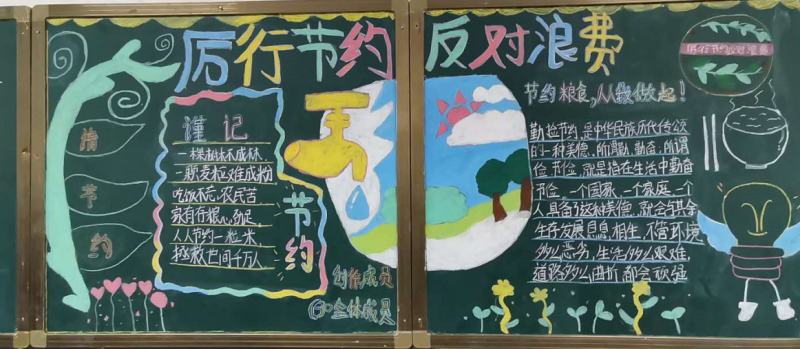 厉行节约
反对浪费
厉行节约 反对浪费
节约粮食，从我做起！
谨记
一棵树木不成林，
一颗麦粒难成粉
吃饭不忘农民苦
家有仔粮心勿足
人人节约一粒米，
拯救世间千万人
节约
节
约
创作成员
G0全体成员
勤俭节约，是中华民族历代传颂
的一种美德，所谓勤，勤奋，所谓
俭，节俭，就是指在生活中勤奋
节俭，一个国家、一个家庭、一个
人具备了这种美德，就会与其命
生存发展息息相生，不管环境
多么恶劣，生活多么艰难，
道路多么曲折都会顽强